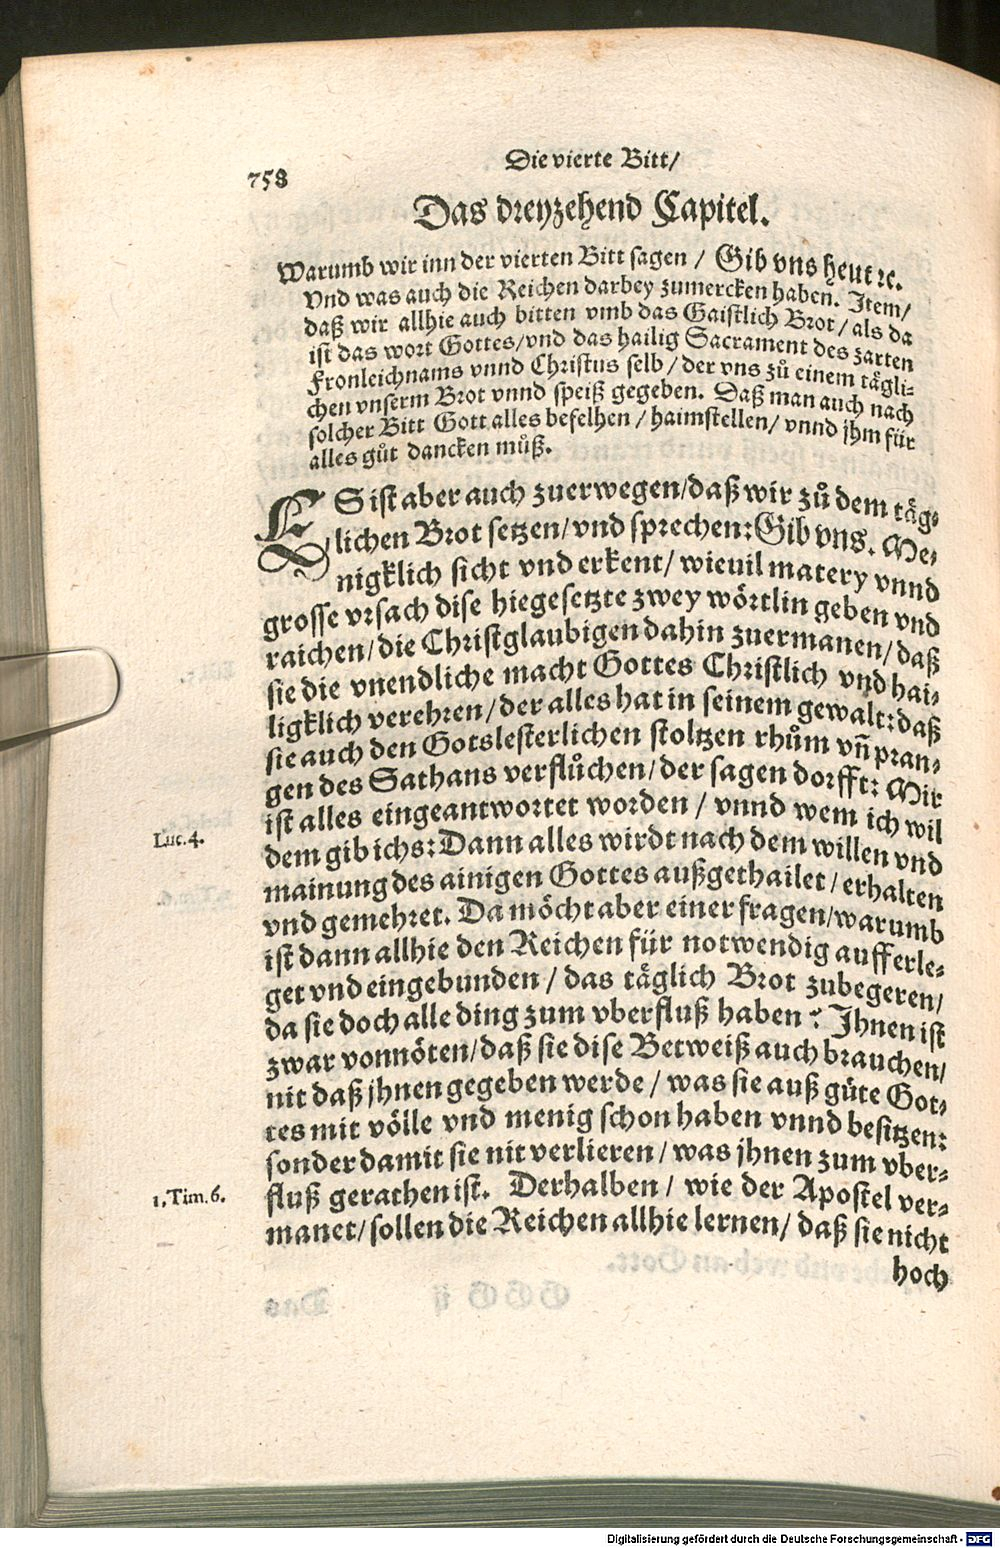 758
Die vierte Bitt/
Das dreyzehend Capitel.
Warumb wir inn der vierten Bitt sagen / Gib vns heut ꝛc.
Vnd was auch die Reichen darbey zumercken haben. Item/
daß wir allhie auch bitten vmb das Gaistlich Brot / als da
ist das wort Gottes/vnd das hailig Sacrament des zarten
Fronleichnams vnnd Christus selb / der vns zů einem tägli-
chen vnserm Brot vnnd speiß gegeben. Daß man auch nach
solcher Bitt Gott alles befelhen / haimstellen/ vnnd jhm für
alles gůt dancken můß.
ES ist aber auch zuerwegen/daß wir zů dem täg-
lichen Brot setzen/vnd sprechen: Gib vns. Me-
nigklich sicht vnd erkent/ wieuil matery vnnd
grosse vrsach dise hiegesetzte zwey wörtlin geben vnd
raichen/die Christglaubigen dahin zuermanen/ daß
sie die vnendliche macht Gottes Christlich vnd hai-
ligklich verehren/der alles hat in seinem gewalt: daß
sie auch den Gotslesterlichen stoltzen rhům vñ pran-
gen des Sathans verflůchen/der sagen dorfft: Mir
ist alles eingeantwortet worden / vnnd wem ich wil
Luc. 4.
dem gib ichs: Dann alles wirdt nach dem willen vnd
mainung des ainigen Gottes außgethailet / erhalten
vnd gemehret. Da möcht aber einer fragen/warumb
ist dann allhie den Reichen für notwendig aufferle-
get vnd eingebunden / das täglich Brot zubegeren/
da sie doch alle ding zum vberfluß haben? Ihnen ist
zwar vonnöten/daß sie dise Betweiß auch brauchen/
nit daß jhnen gegeben werde / was sie auß güte Got-
tes mit völle vnd menig schon haben vnnd besitzen:
sonder damit sie nit verlieren / was jhnen zum vber-
1. Tim. 6.
fluß gerathen ist. Derhalben / wie der Apostel ver-
manet/sollen die Reichen allhie lernen/ daß sie nicht
hoch
Digitalisierung gefördert durch die Deutsche Forschungsgemeinschaft - DFG